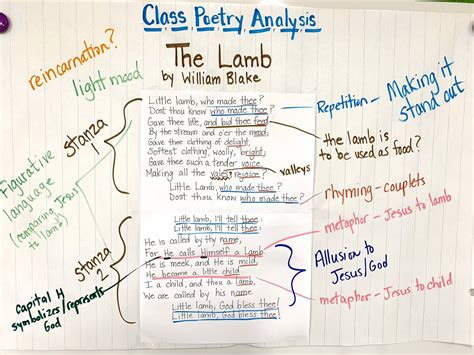 Class Poetry Analysis
The Lamb
by William Blake
reincarnation?
light mood
Little lamb, who made thee?
Dost thou know who made thee?
Gave thee life, and bid thee feed
By the stream and o'er the mead;
Gave thee clothing of delight,
Softest clothing, woolly, bright;
Gave thee such a tender voice,
Making all the vales rejoice?
Little lamb, who made thee?
Dost thou know who made thee?
stanza 1
valleys
Repetition - Making it
stand out
the lamb is
to be used as food?
rhyming - couplets
metaphor - Jesus to lamb
Figurative
language
(comparing Jesus
to lamb)
Little lamb, I'll tell thee:
Little lamb, I'll tell thee:
He is called by thy name,
For He calls Himself a Lamb.
He is meek, and He is mild,
He became a little child.
I a child, and thou a lamb,
We are called by his name
Little Lamb, God bless thee!
Little Lamb, God bless thee!
stanza
2
Allusion to
Jesus/God
metaphor - Jesus to child
Capital H
symbolizes/represents
God